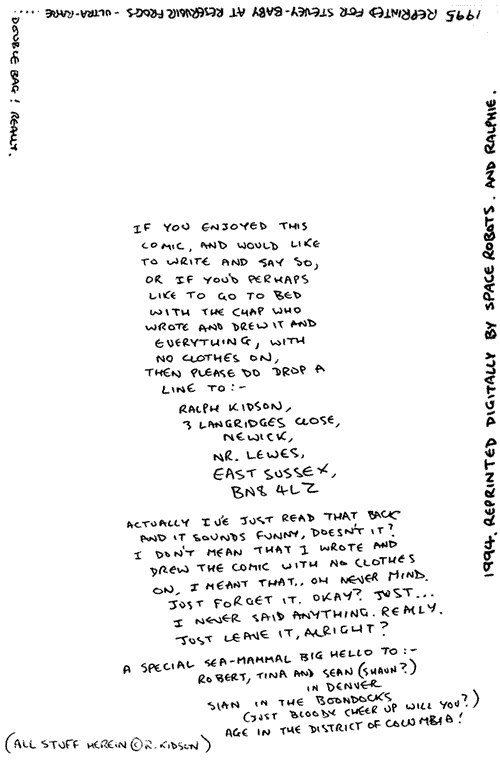 1995 REPRINTED FOR STEVEY-BABY AT RESERVOIR FROGS - ULTRA-RARE ....
DOUBLE BAG! REALLY.
IF YOU ENJOYED THIS
COMIC, AND WOULD LIKE
TO WRITE AND SAY SO,
OR IF YOU'D PERHAPS
LIKE TO GO TO BED
WITH THE CHAP WHO
WROTE AND DREW IT AND
EVERYTHING, WITH
NO CLOTHES ON,
THEN PLEASE DO DROP A
LINE TO:-
RALPH KIDSON,
3 LANGRIDGES CLOSE,
NEWICK,
NR. LEWES,
EAST SUSSEX,
BN8 4LZ
ACTUALLY I'VE JUST READ THAT BACK
AND IT SOUNDS FUNNY, DOESN'T IT?
I DON'T MEAN THAT I WROTE AND
DREW THE COMIC WITH NO CLOTHES
ON, I MEANT THAT.. OH NEVER MIND.
JUST FORGET IT. OKAY? JUST...
I NEVER SAID ANYTHING. REALLY.
JUST LEAVE IT, ALRIGHT?
A SPECIAL SEA-MAMMAL BIG HELLO TO:-
ROBERT, TINA AND SEAN (SHAUN?)
IN DENVER
SIAN IN THE BOONDOCKS
(JUST BLOODY CHEER UP WILL YOU?)
AGE IN THE DISTRICT OF COLUMBIA!
(ALL STUFF HEREIN © R. KIDSON)
1994. REPRINTED DIGITALLY BY SPACE ROBOTS. AND RALPHIE.